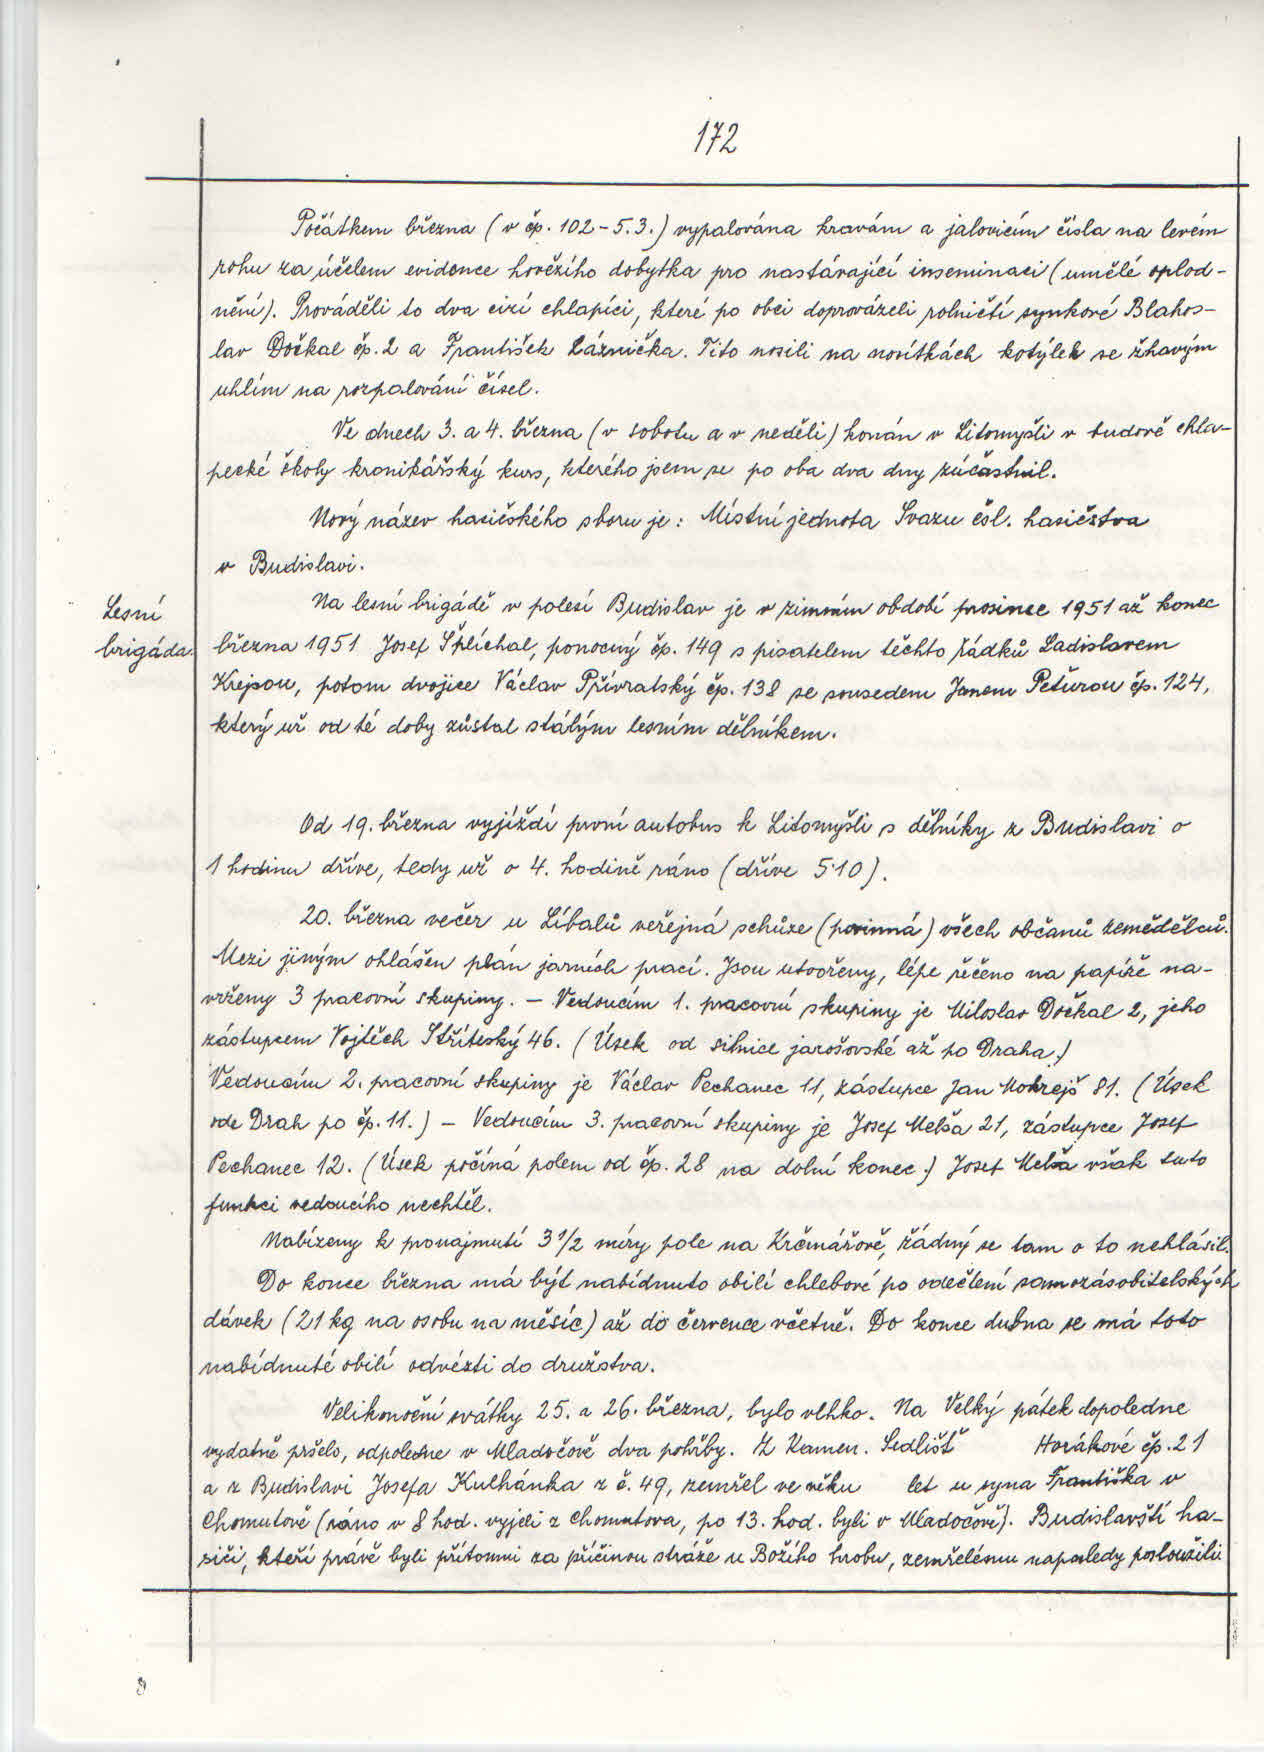 172
Počátkem března (v čp. 102 – 5.3.) vypalována kravám a jalovicím čísla na levém
rohu za účelem evidence hovězího dobytka pro nastávající inseminaci (umělé oplod-
nění). Prováděli to dva cizí chlapíci, které po obci doprovázeli rolničtí synkové Blahos-
lav Dočkal čp. 2 a František Láznička. Tito nosili na nosítkách kotýlek se žhavým
uhlím na rozpalování čísel.
Ve dnech 3. a 4. března (v sobotu a v neděli) konán v Litomyšli v budově chla-
pecké školy kronikářský kurs, kterého jsem se po oba dva dny zúčastnil.
Nový název hasičského sboru je: Místní jednota Svazu čsl. hasičstva
v Budislavi.
Lesní
brigáda.
Na lesní brigádě v polesí Budislav je v zimním období prosinec 1951 až konec
března 1951 Josef Šplíchal, ponocný čp. 149 s pisatelem těchto řádků Ladislavem
Krejsou, potom dvojice Václav Přívratský čp. 138 se sousedem Janem Peťurou čp. 124,
který už od té doby zůstal stálým lesním dělníkem.
Od 19. března vyjíždí první autobus k Litomyšli s dělníky z Budislavi o
1 hodinu dříve, tedy už o 4. hodině ráno (dříve 5·10).
20. března večer u Líbalů veřejná schůze (povinná) všech občanů zemědělců.
Mezi jiným ohlášen plán jarních prací. Jsou utvořeny, lépe řečeno na papíře na-
vrženy 3 pracovní skupiny. – Vedoucím 1. pracovní skupiny je Miloslav Dočkal 2, jeho
zástupcem Vojtěch Stříteský 46. (Úsek od silnice jarošovské až po Draha.)
Vedoucím 2. pracovní skupiny je Václav Pechanec 11, zástupce Jan Mokrejš 81. (Úsek
ode Drah po čp. 11.) – Vedoucím 3. pracovní skupiny je Josef Melša 21, zástupce Josef
Pechanec 12. (Úsek počíná polem od čp. 28 na dolní konec.) Josef Melša však tuto
funkci vedoucího nechtěl.
Nabízeny k pronajmutí 3 1/2 míry pole na Krčmářově, žádný se tam o to nehlásil.
Do konce března má být nabídnuto obilí chlebové po odečtení samozásobitelských
dávek (21 kg na osobu na měsíc) až do července včetně. Do konce dubna se má toto
nabídnuté obilí odvézti do družstva.
Velikonoční svátky 25. a 26. března, bylo vlhko. Na Velký pátek dopoledne
vydatně pršelo, odpoledne v Mladočově dva pohřby. Z Kamen. Sedlišť Horákové čp. 21
a z Budislavi Josefa Kulhánka z č. 49, zemřel ve věku let u syna Františka v
Chomutově (ráno v 8 hod. vyjeli z Chomutova, po 13. hod. byli v Mladočově). Budislavští ha-
siči, kteří právě byli přítomni za příčinou stráže u Božího hrobu, zemřelému naposledy posloužili